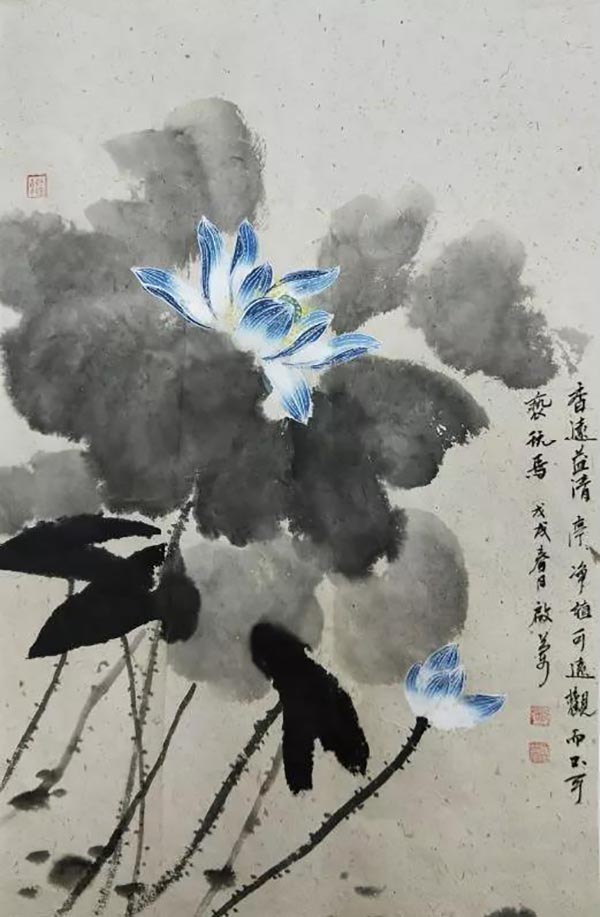 香遠益清亭淨植可遠觀而不可
褻玩焉 戊戌春日啟